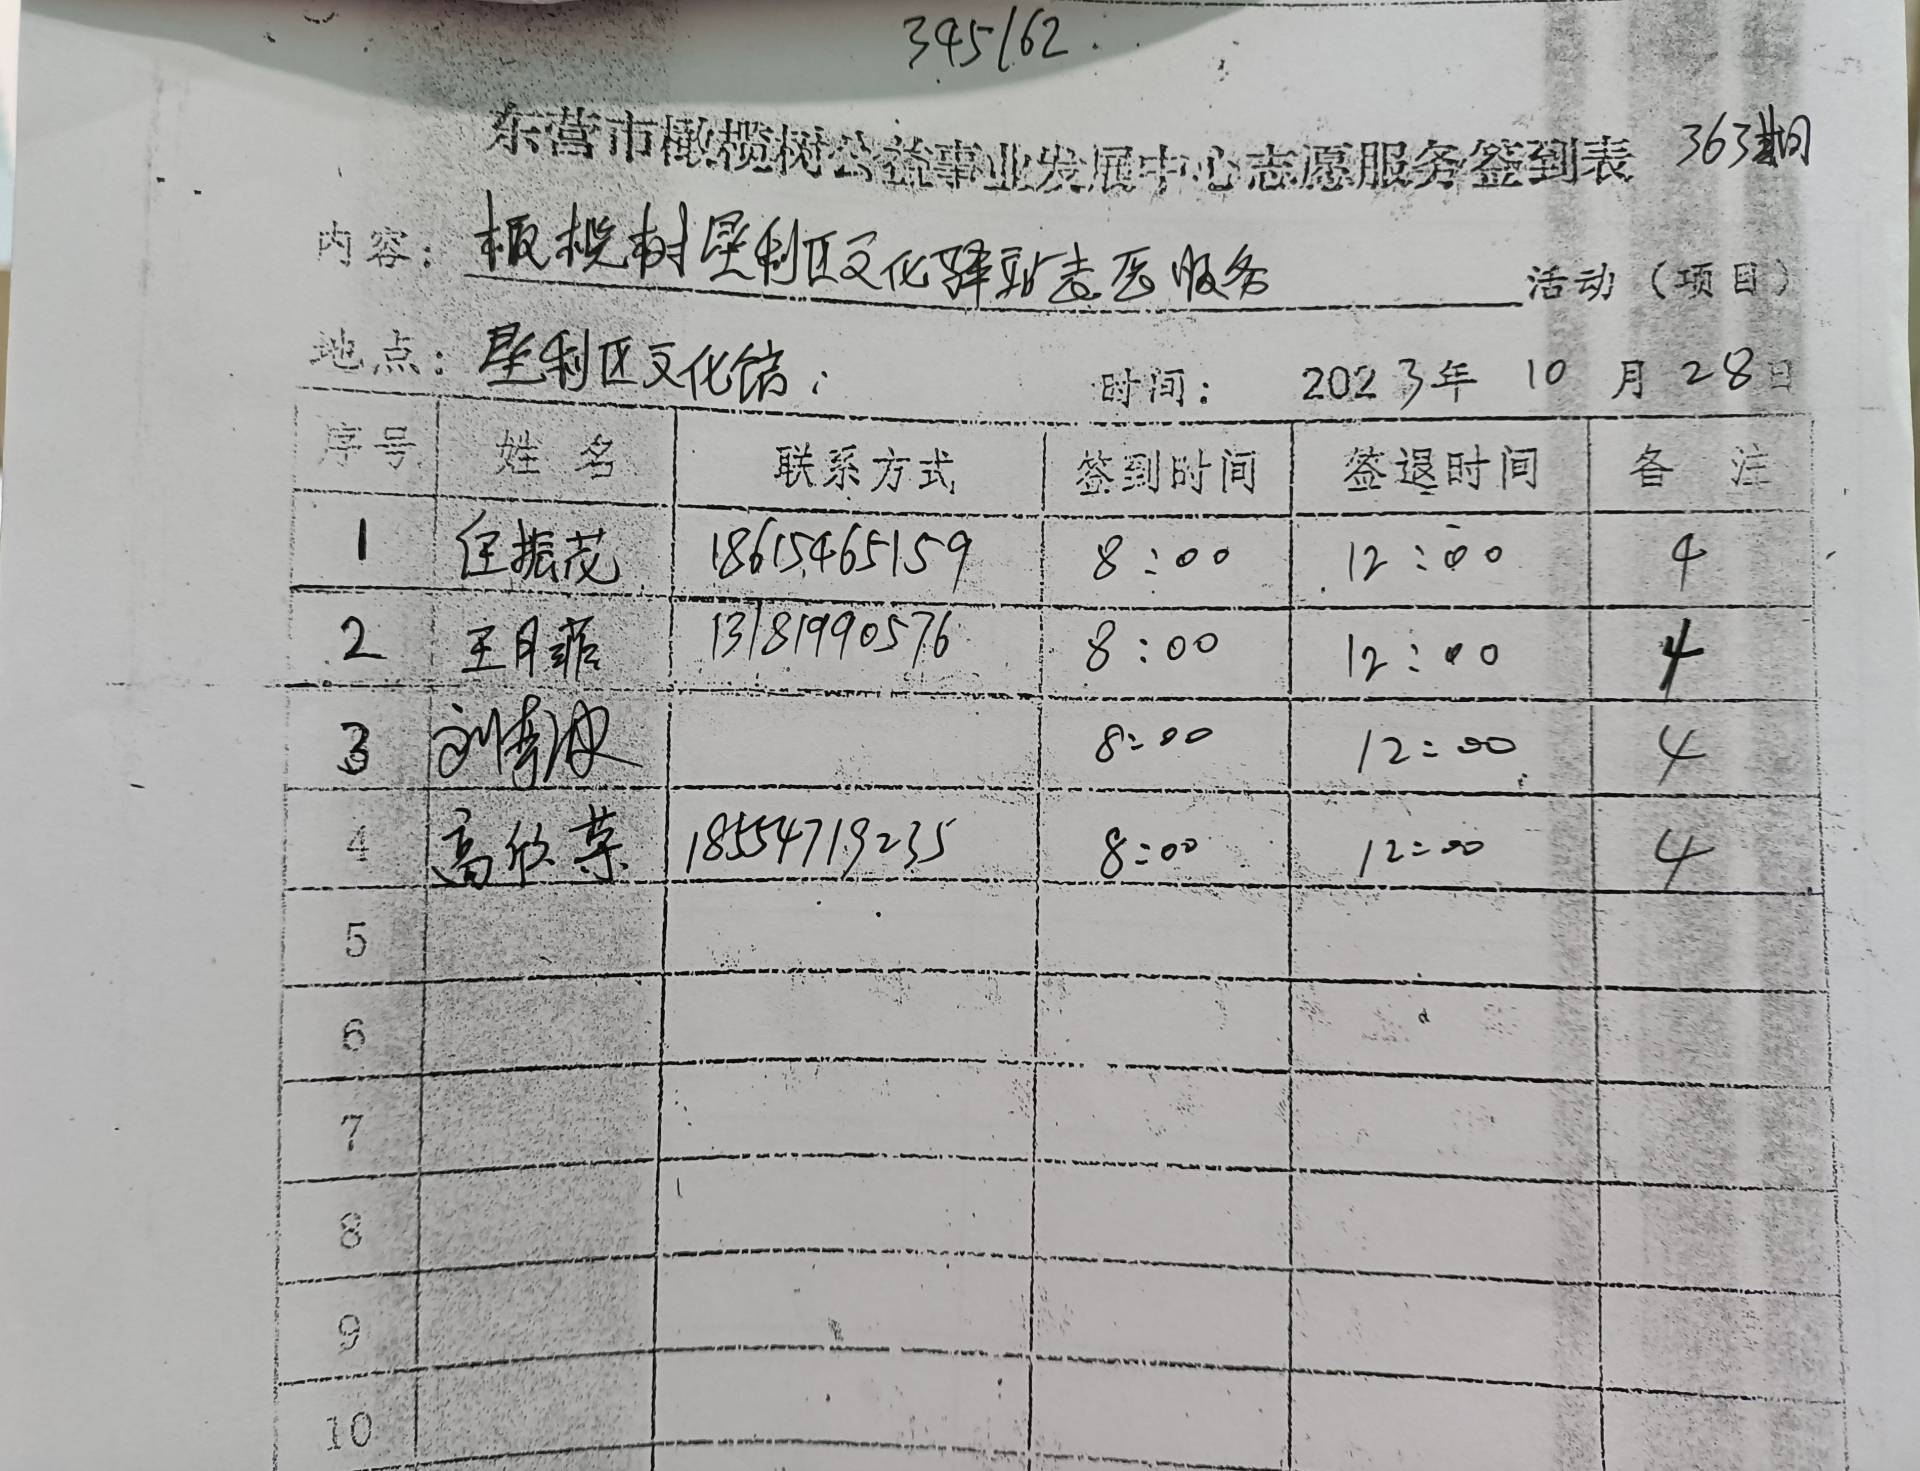 345162
东营市橄榄树公益事业发展中心志愿服务签到表 363期
内容: 橄榄树垦利区文化驿站志愿服务 活动(项目)
地点: 垦利区文化馆. 时间: 2023年 10 月 28日
序号 姓名 联系方式 签到时间 签退时间 备注
1 任振花 18615465159 8:00 12:00 4
2 王月 13181990576 8:00 12:00 4
3 刘 8:00 12:00 4
4 高欣 18554719235 8:00 12:00 4
5
6
7
8
9
10